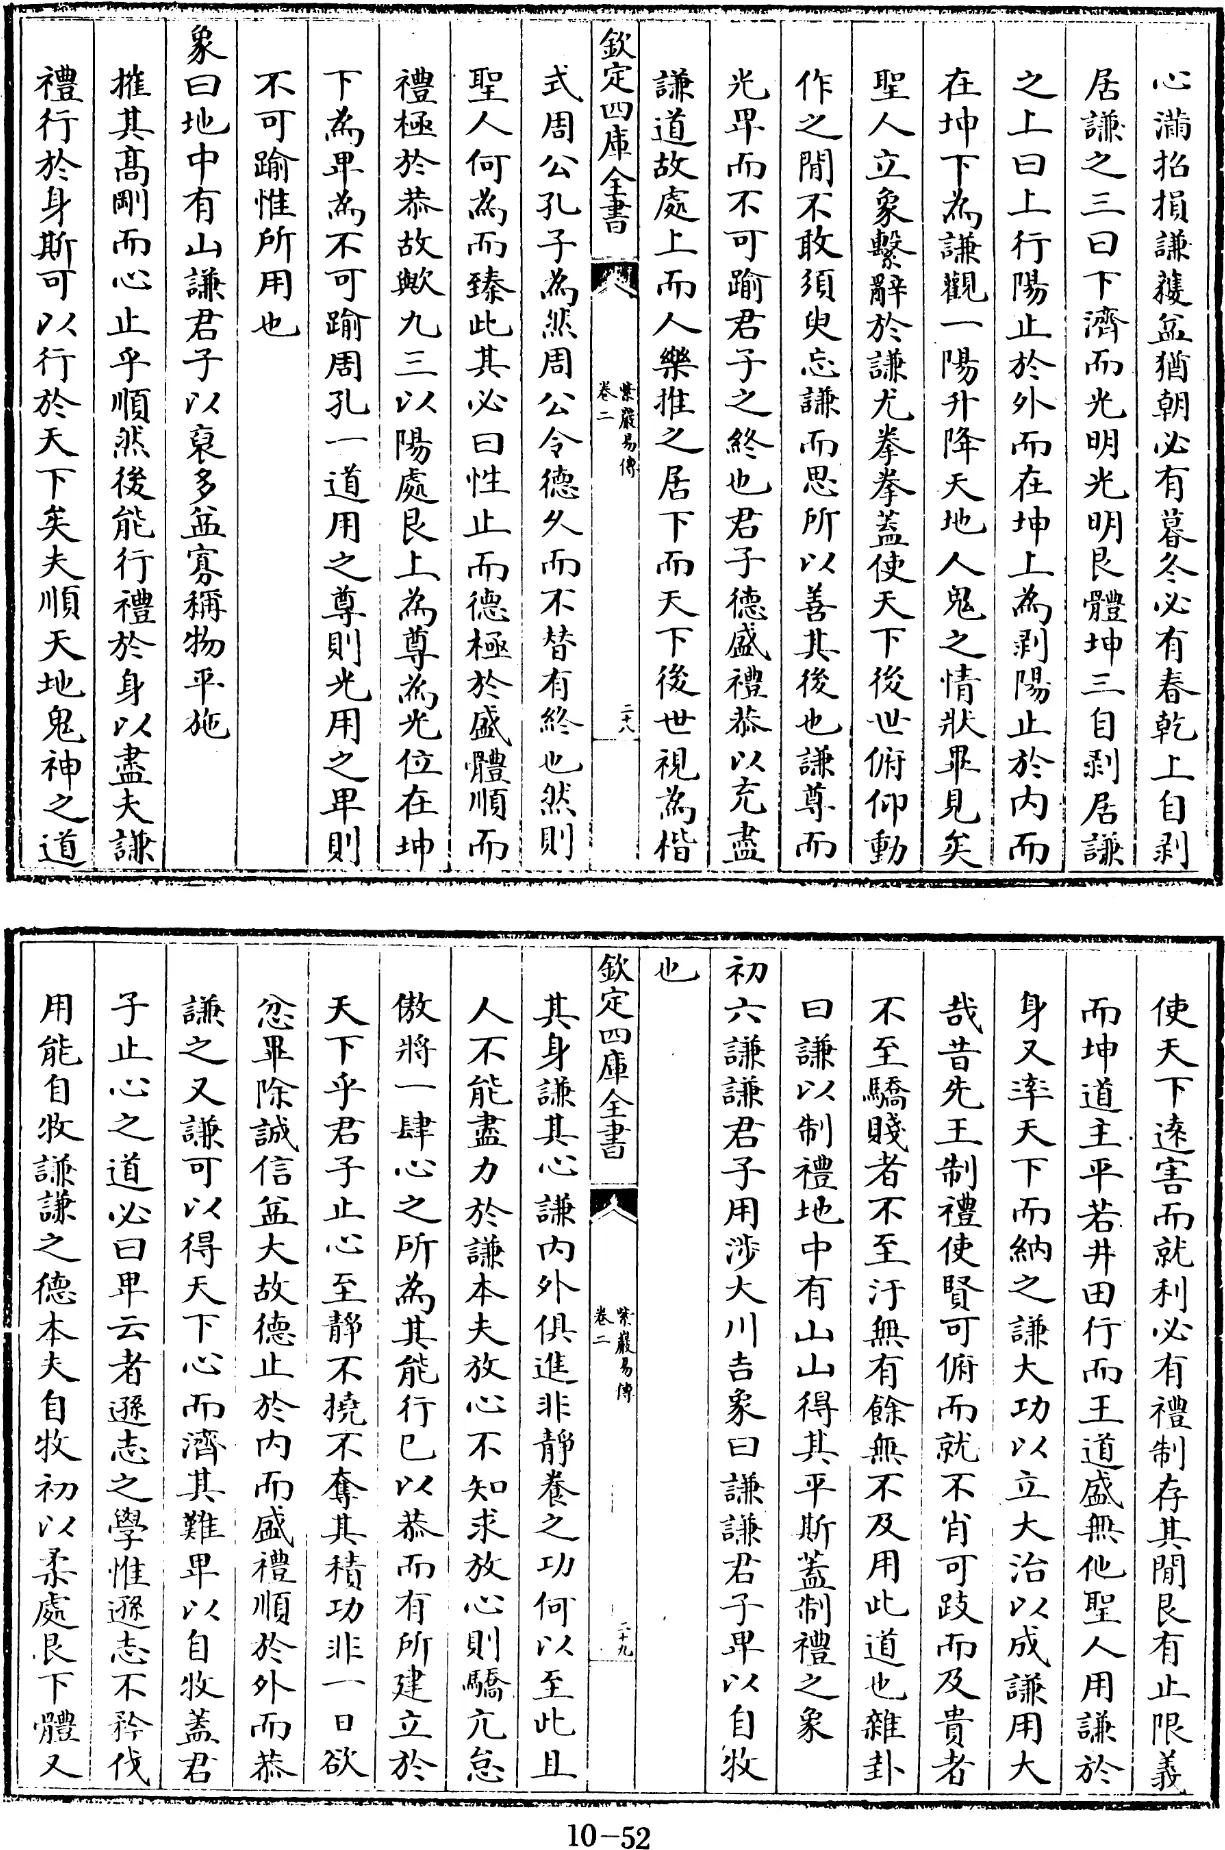 心滿招損謙獲益猶朝必有暮冬必有春乾上自剥
居謙之三曰下濟而光明光明艮體坤三自剥居謙
之上曰上行陽止於外而在坤上為剥陽止於内而
在坤下為謙觀一陽升降天地人鬼之情狀畢見矣
聖人立象繫辭於謙尤拳拳蓋使天下後世俯仰動
作之閒不敢須臾忘謙而思所以善其後也謙尊而
光卑而不可踰君子之終也君子德盛禮恭以充盡
謙道故處上而人樂推之居下而天下後世視為楷
欽定四庫全書
紫巖易傳
卷二
二十八
式周公孔子為然周公令德久而不替有終也然則
聖人何為而臻此其必曰性止而德極於盛體順而
禮極於恭故歟九三以陽處艮上為尊為光位在坤
下為卑為不可踰周孔一道用之尊則光用之卑則
不可踰惟所用也
象曰地中有山謙君子以裒多益寡稱物平施
摧其髙剛而心止乎順然後能行禮於身以盡夫謙
禮行於身斯可以行於天下矣夫順天地鬼神之道
使天下逺害而就利必有禮制存其閒艮有止限義
而坤道主平若井田行而王道盛無他聖人用謙於
身又率天下而納之謙大功以立大治以成謙用大
哉昔先王制禮使賢可俯而就不肖可跂而及貴者
不至驕賤者不至汙無有餘無不及用此道也雜卦
曰謙以制禮地中有山山得其平斯蓋制禮之象
初六謙謙君子用涉大川吉象曰謙謙君子卑以自牧
也
欽定四庫全書
紫巖易傳
卷二
二十九
其身謙其心謙内外俱進非靜養之功何以至此且
人不能盡力於謙本夫放心不知求放心則驕亢怠
傲將一肆心之所為其能行己以恭而有所建立於
天下乎君子止心至靜不撓不奪其積功非一日欲
忿畢除誠信益大故德止於内而盛禮順於外而恭
謙之又謙可以得天下心而濟其難卑以自牧蓋君
子止心之道必曰卑云者遜志之學惟遜志不矜伐
用能自牧謙謙之德本夫自牧初以柔處艮下體又
10-52